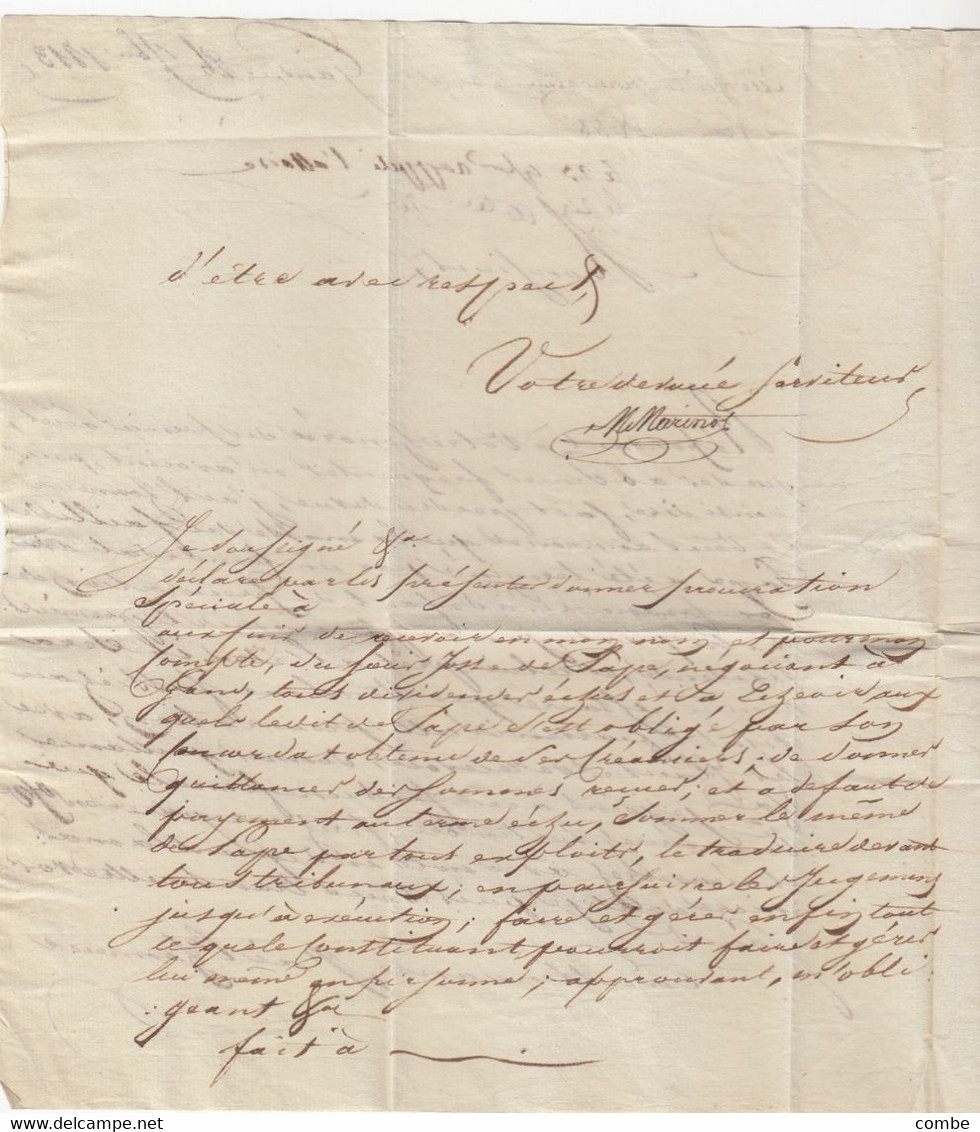 d'être avec respect,
Votre devoué serviteur
Je soussigné &a
déclare par les présentes donner procuration
spéciale à
aux fins de recevoir en mon nom et pour mon
compte, du sieur Josse de Pape, négociant à
Gand, tous dividendes échus et à Echeoir aux
quels ledit de Pape s'est obligé par son
concordat obtenu de ses Créanciers; de donner
quittances des sommes reçues; et à defaut de
payement au terme échu, sommer le même
de Pape par tous exploits, le traduire devant
tous tribunaux; en poursuivre les Jugemens
jusqu'à exécution; faire et gérer enfin tout
ce que le Constituant pourroit faire et gérer
lui même en personne; approuvant, en obli
:geant &a
fait à
delcampe.net
combe